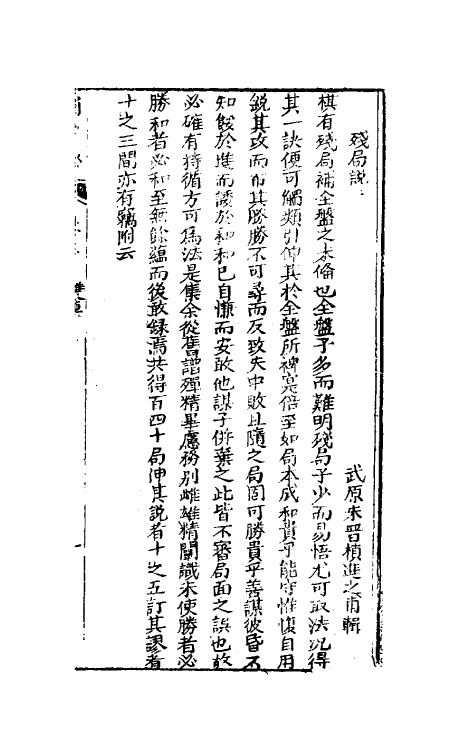 殘局説
武原朱晉楨進之甫輯
棋有殘局補全盤之未備也全盤子多而難明殘局子少而易悟尤可取法況得
其一訣便可觸類引伸其於全盤所裨寔倍至如局本成和貴乎能守惟愎自用
鋭其攻而布其勝勝不可尋而反致失中敗且隨之局固可勝貴乎善謀彼昏不
知餒於進而諉於和和已自慊而安敢他謀子併棄之此皆不審局面之誤也故
必確有持循方可爲法是集余從舊譜殫精畢慮務别雌雄精闡識未使勝者必
勝和者必和至無餘蘊而後敢録焉共得百四十局伸其説者十之五訂其謬者
十之三間亦有竊附云